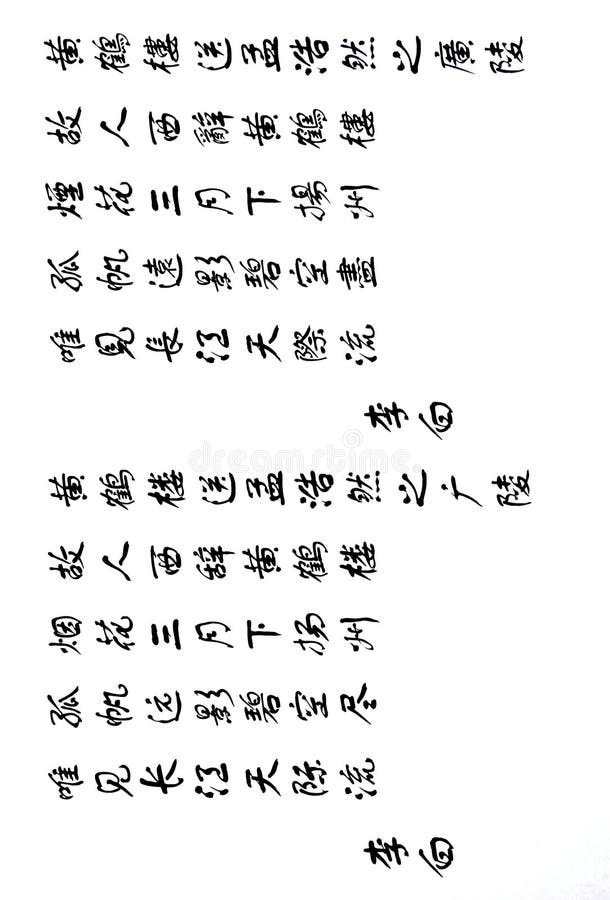 黄鶴樓送孟浩然之廣陵
故人西辭黄鶴樓
煙花三月下揚州
孤帆遠影碧空盡
唯見長江天際流
李白
dreamstime
黄鹤楼送孟浩然之广陵
故人西辞黄鹤楼
烟花三月下扬州
孤帆远影碧空尽
唯见长江天际流
李白